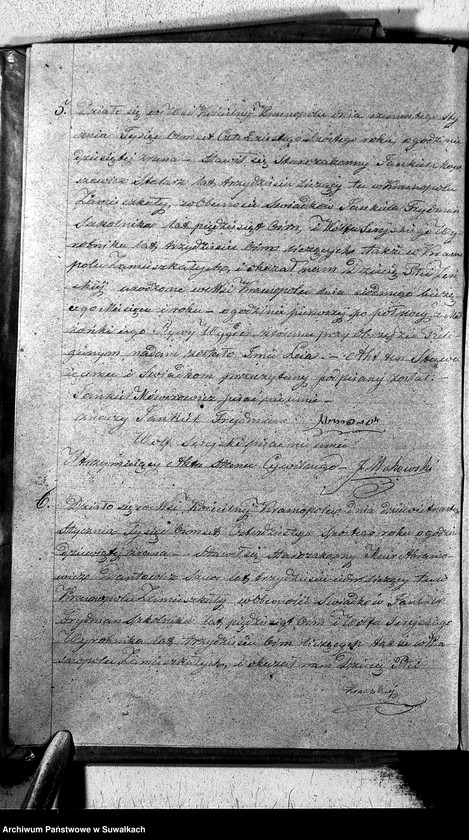 5. Działo się w Wsi Kościelny Krasnopolu dnia szesnastego sty
cznia Tysiąc Ośmset Czterdziestego Szóstego roku, o godzinie
dziesiątej zrana – Stawił się Starozakonny Jankiel Mow
szowicz Stolarz lat trzydzieści liczący tu w Krasnopolu
Zamieszkały, w Obecności Świadków Jankiela Frydman
Szkolnika lat pięćdziesiąt Ośm, i Wolfa Serejskiego Wy
robnika lat trzydzieści Ośm liczących także w Krasno
polu Zamieszkałych, i okazał nam Dziecię Płci Żeń
skiej urodzone w Wsi Krasnopolu dnia siódmego bieżą
cego Miesiąca i roku – o godzinie pierwszej po północy z Mał
żonki jego
Dziecięciu temu przy Obrzędzie Reli
gijnym nadane zostało Imie Leia. – Akt ten Stawa
jącemu i Świadkom przeczytany podpisany został. –
Jankiel Mowszowicz pisać nieumie –
Jankiel Frydman
Wolf Serejski pisać nie umie
Utrzymujący Akta Stanu Cywilnego – J. Makowski
6. Działo się w Wsi Kościelny Krasnopolu dnia
Stycznia Tysiąc Ośmset Czterdziestego Szóstego roku o godzin
dziewiątej zrana – Stawił się Starozakonny Abramo
wicz lat trzydzieści liczący tu w
Krasnopolu Zamieszkały w Obecności Świadków Jankiela
Frydman Szkolnika lat pięćdziesiąt Ośm i Wolfa Serejskiego
Wyrobnika lat trzydzieści Ośm liczących także w Kra
snopolu Zamieszkałych, i okazał nam Dziecię Płci
Archiwum Państwowe w Suwałkach